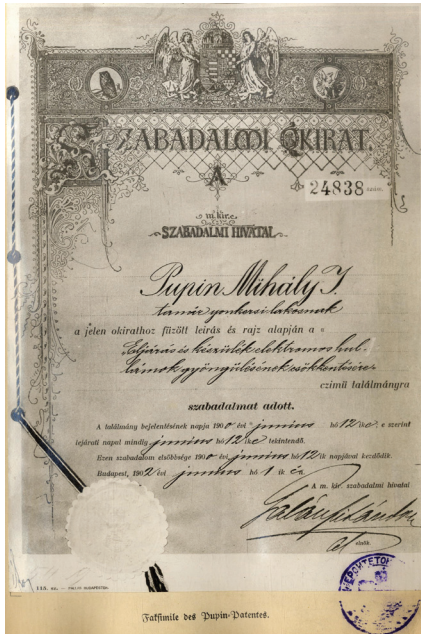 SZABADALMI OKIRAT.
A
24838 szám.
m. kir.
SZABADALMI HIVATAL
Pupin Mihály I.
tanár yonkersi lakosnak
a jelen okirathoz fűzött leirás és rajz alapján a
Eljárás és készülék elektromos hul-
lámok gyöngülésének csökkentésére
czimü találmányra
szabadalmat adott.
A találmány bejelentésének napja 1900 évi junius hó 12 ike, e szerint
lejárati napul mindig junius hó 12 ike tekintendő.
Ezen szabadalom elsőbbsége 1900 évi junius hó 12 ik napjával kezdődik.
Budapest, 1902 évi junius hó 1 ik én
A m. kir. szabadalmi hivatal
elnök.
115. sz.
Faksimile des Pupin-Patentes.